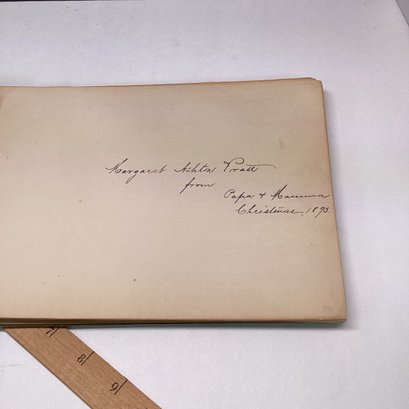 Margaret Ashton Pratt
from
Papa & Mamma
Christmas, 1893.
7
8
9